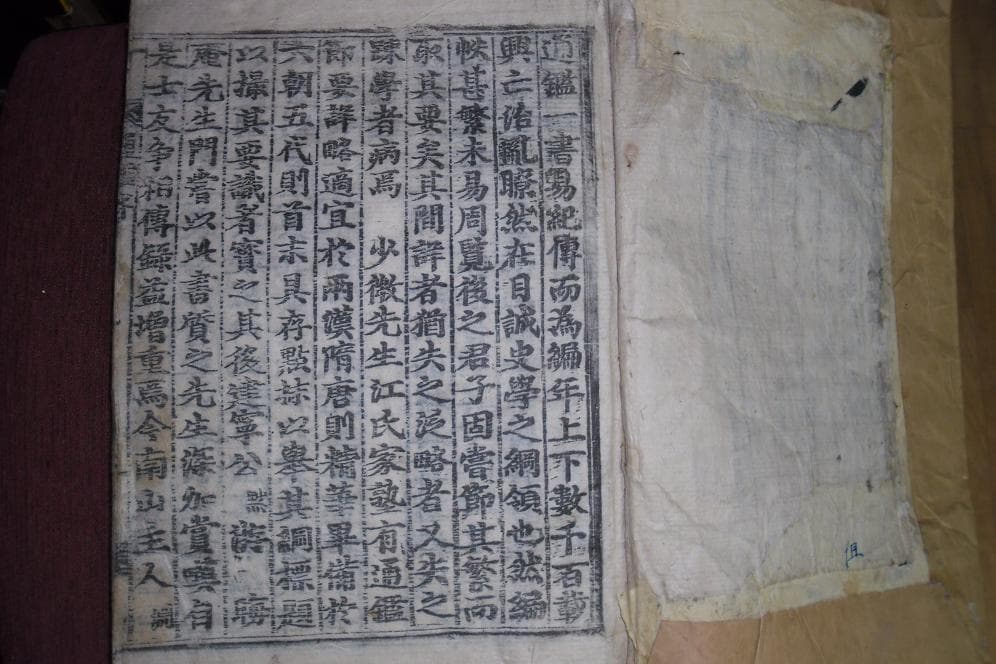 通鑑一書易紀傳而為編年上下數千百載
興亡治亂瞭然在目誠史學之綱領也然編
帙甚繁未易周覽後之君子固嘗節其繁而
取其要矣其間詳者猶失之泛略者又失之
踈學者病焉 少微先生江氏家塾有通鑑
節要詳略適宜於兩漢隋唐則精華畢備於
六朝五代則首末具存點抹以舉其綱標題
以撮其要識者寶之其後建寧公默 遊 晦
庵先生門嘗以此書質之先生深加賞嘆自
是士友爭相傳錄益增重焉今南山主人淵